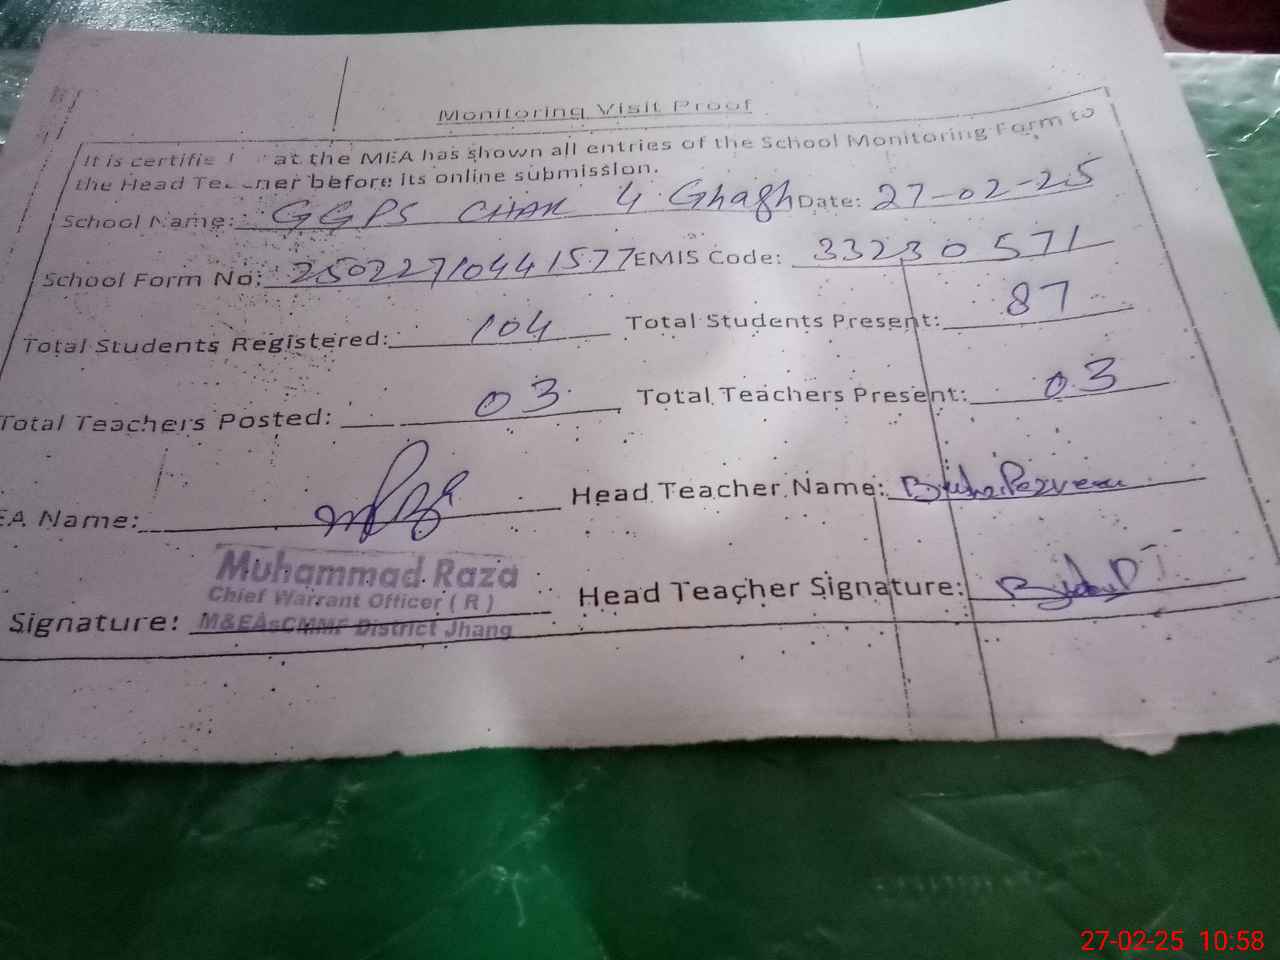 Monitoring Visit Proof
It is certifie at the MEA has shown all entries of the School Monitoring Form to
the Head Teacher before its online submission.
School Name: GGPS CHAK 4 Ghagh Date: 27-02-25
School Form No: 25022710441577 EMIS Code: 33230571
Total Students Registered: 104 Total Students Present: 87
Total Teachers Posted: 03 Total Teachers Present: 03
EA Name: Head Teacher Name: Parveen
Muhammad Raza
Chief Warrant Officer ( R )
Signature: M&EAsCMMF District Jhang Head Teacher Signature:
27-02-25 10:58